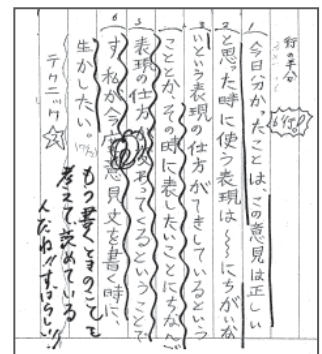 行の半分
6行分
1
今日分かったことは、この意見は正しい
2
と思った時に使う表現は〜〜にちがいな
3
いという表現の仕方がてきしているという
4
こととか、その時に表したいことにちなんで
5
表現の仕方が変わってくるということで
6
す。私が今意見文を書く時に、
生かしたい。
テクニック☆
もう書くときのことを
考えて読めている
んだね!!すばらしい!!